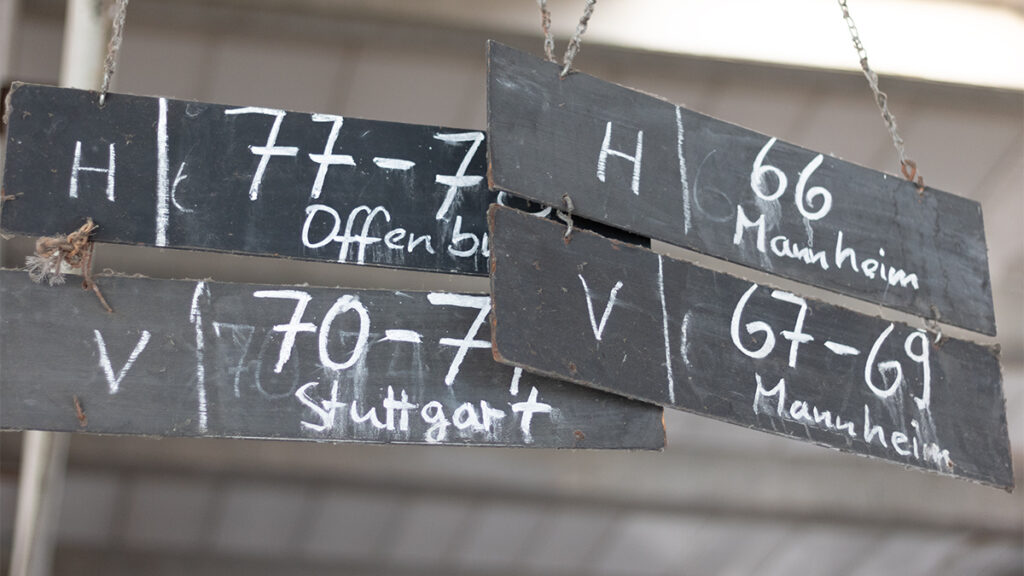 H 77-7
Offenbu
V 70-7
Stuttgart
H 66
Mannheim
V 67-69
Mannheim